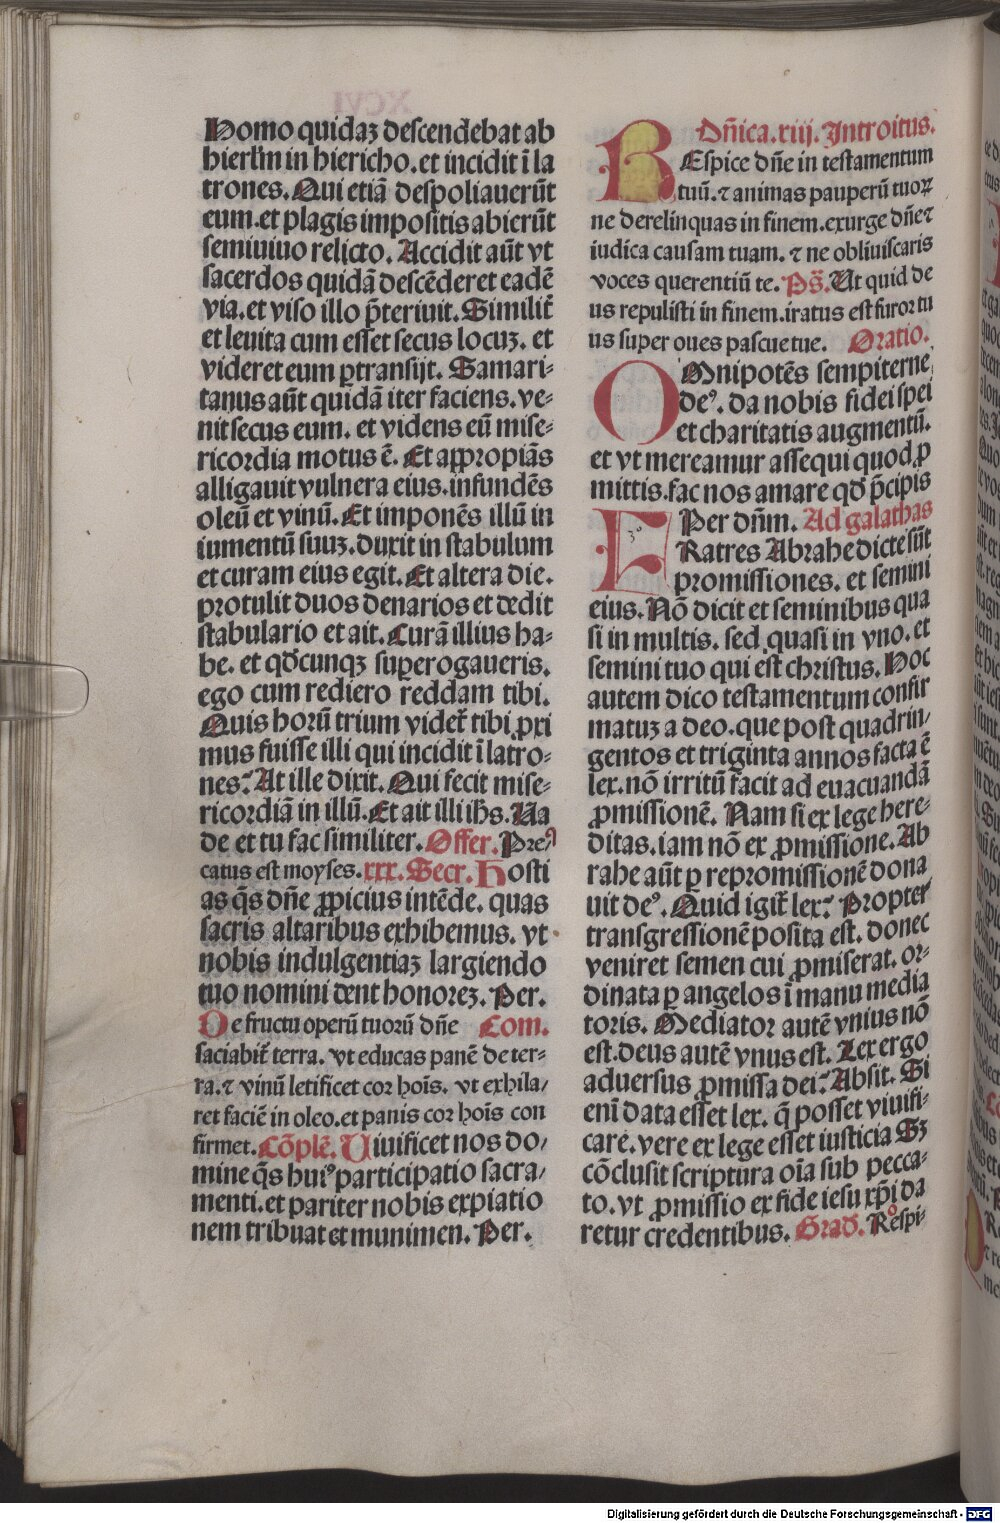 Homo quidaʒ descendebat ab
hierl'm in hiericho. et incidit ī la
trones. Qui etiā despoliauerūt
eum. et plagis impositis abierūt
semiuiuo relicto. Accidit aūt vt
sacerdos quidā descēderet eadē
via. et viso illo p̄teriuit. Similit̄
et leuita cum esset secus locuʒ. et
videret eum ꝑtransijt. Samari-
tanus aūt quidā iter faciens. ve-
nit secus eum. et videns eū mise-
ricordia motus ē. Et appropiās
alligauit vulnera eius. infundēs
oleū et vinū. Et imponēs illū in
iumentū suuʒ. duxit in stabulum
et curam eius egit. Et altera die.
protulit duos denarios et dedit
stabulario et ait. Curā illius ha-
be. et qd̄cunqʒ superogaueris.
ego cum rediero reddam tibi.
Quis horū trium videt̄ tibi ꝓxi
mus fuisse illi qui incidit ī latro-
nes: At ille dixit. Qui fecit mise-
ricordiā in illū. Et ait illi ih̄s. Va
de et tu fac similiter. Offer. Pre-
catus est moyses. xxx. Secr. Hosti
as q̄s dn̄e ꝓpicius intēde. quas
sacris altaribus exhibemus. vt
nobis indulgentiaʒ largiendo
tuo nomini dent honoreʒ. Per.
De fructu operū tuorū dn̄e Com.
saciabit̄ terra. vt educas panē de ter-
ra. ⁊ vinū letificet cor hoīs. vt exhila/
ret faciē in oleo. et panis cor hoīs con
firmet. Cōplē. Uiuificet nos do/
mine q̄s huiꝰ participatio sacra/
menti. et pariter nobis expiatio
nem tribuat et munimen. Per.
Dn̄ica. xiij. Introitus.
REspice dn̄e in testamentum
tuū. ⁊ animas pauperū tuoꝝ
ne derelinquas in finem. exurge dn̄e ⁊
iudica causam tuam. ⁊ ne obliuiscaris
voces querentiū te. Ps̄. Ut quid de
us repulisti in finem. iratus est furor tu
us super oues pascue tue. Oratio.
OMnipotēs sempiterne
deꝰ. da nobis fidei spei
et charitatis augmentū.
et vt mereamur assequi quod ꝓ
mittis. fac nos amare qd̄ p̄cipis
Per dn̄m. Ad galathas
FRatres Abrahe dicte sūt
promissiones. et semini
eius. Nō dicit et seminibus qua
si in multis. sed quasi in vno. et
semini tuo qui est christus. Hoc
autem dico testamentum confir
matuʒ a deo. que post quadrin/
gentos et triginta annos facta ē
lex. nō irritū facit ad euacuandā
ꝓmissionē. Nam si ex lege here-
ditas. iam nō ex ꝓmissione. Ab
rahe aūt ꝑ repromissionē dona
uit deꝰ. Quid igit̄ lex: Propter
transgressionē posita est. donec
veniret semen cui ꝓmiserat. or-
dinata ꝑ angelos ī manu media
toris. Mediator autē vnius nō
est. deus autē vnus est. Lex ergo
aduersus ꝓmissa dei: Absit. Si
enī data esset lex. q̄ posset viuifi-
care. vere ex lege esset iusticia Sʒ
cōclusit scriptura oīa sub pecca-
to. vt ꝓmissio ex fide iesu xp̄i da
retur credentibus. Grad̄. Respi-
Digitalisierung gefördert durch die Deutsche Forschungsgemeinschaft - DFG